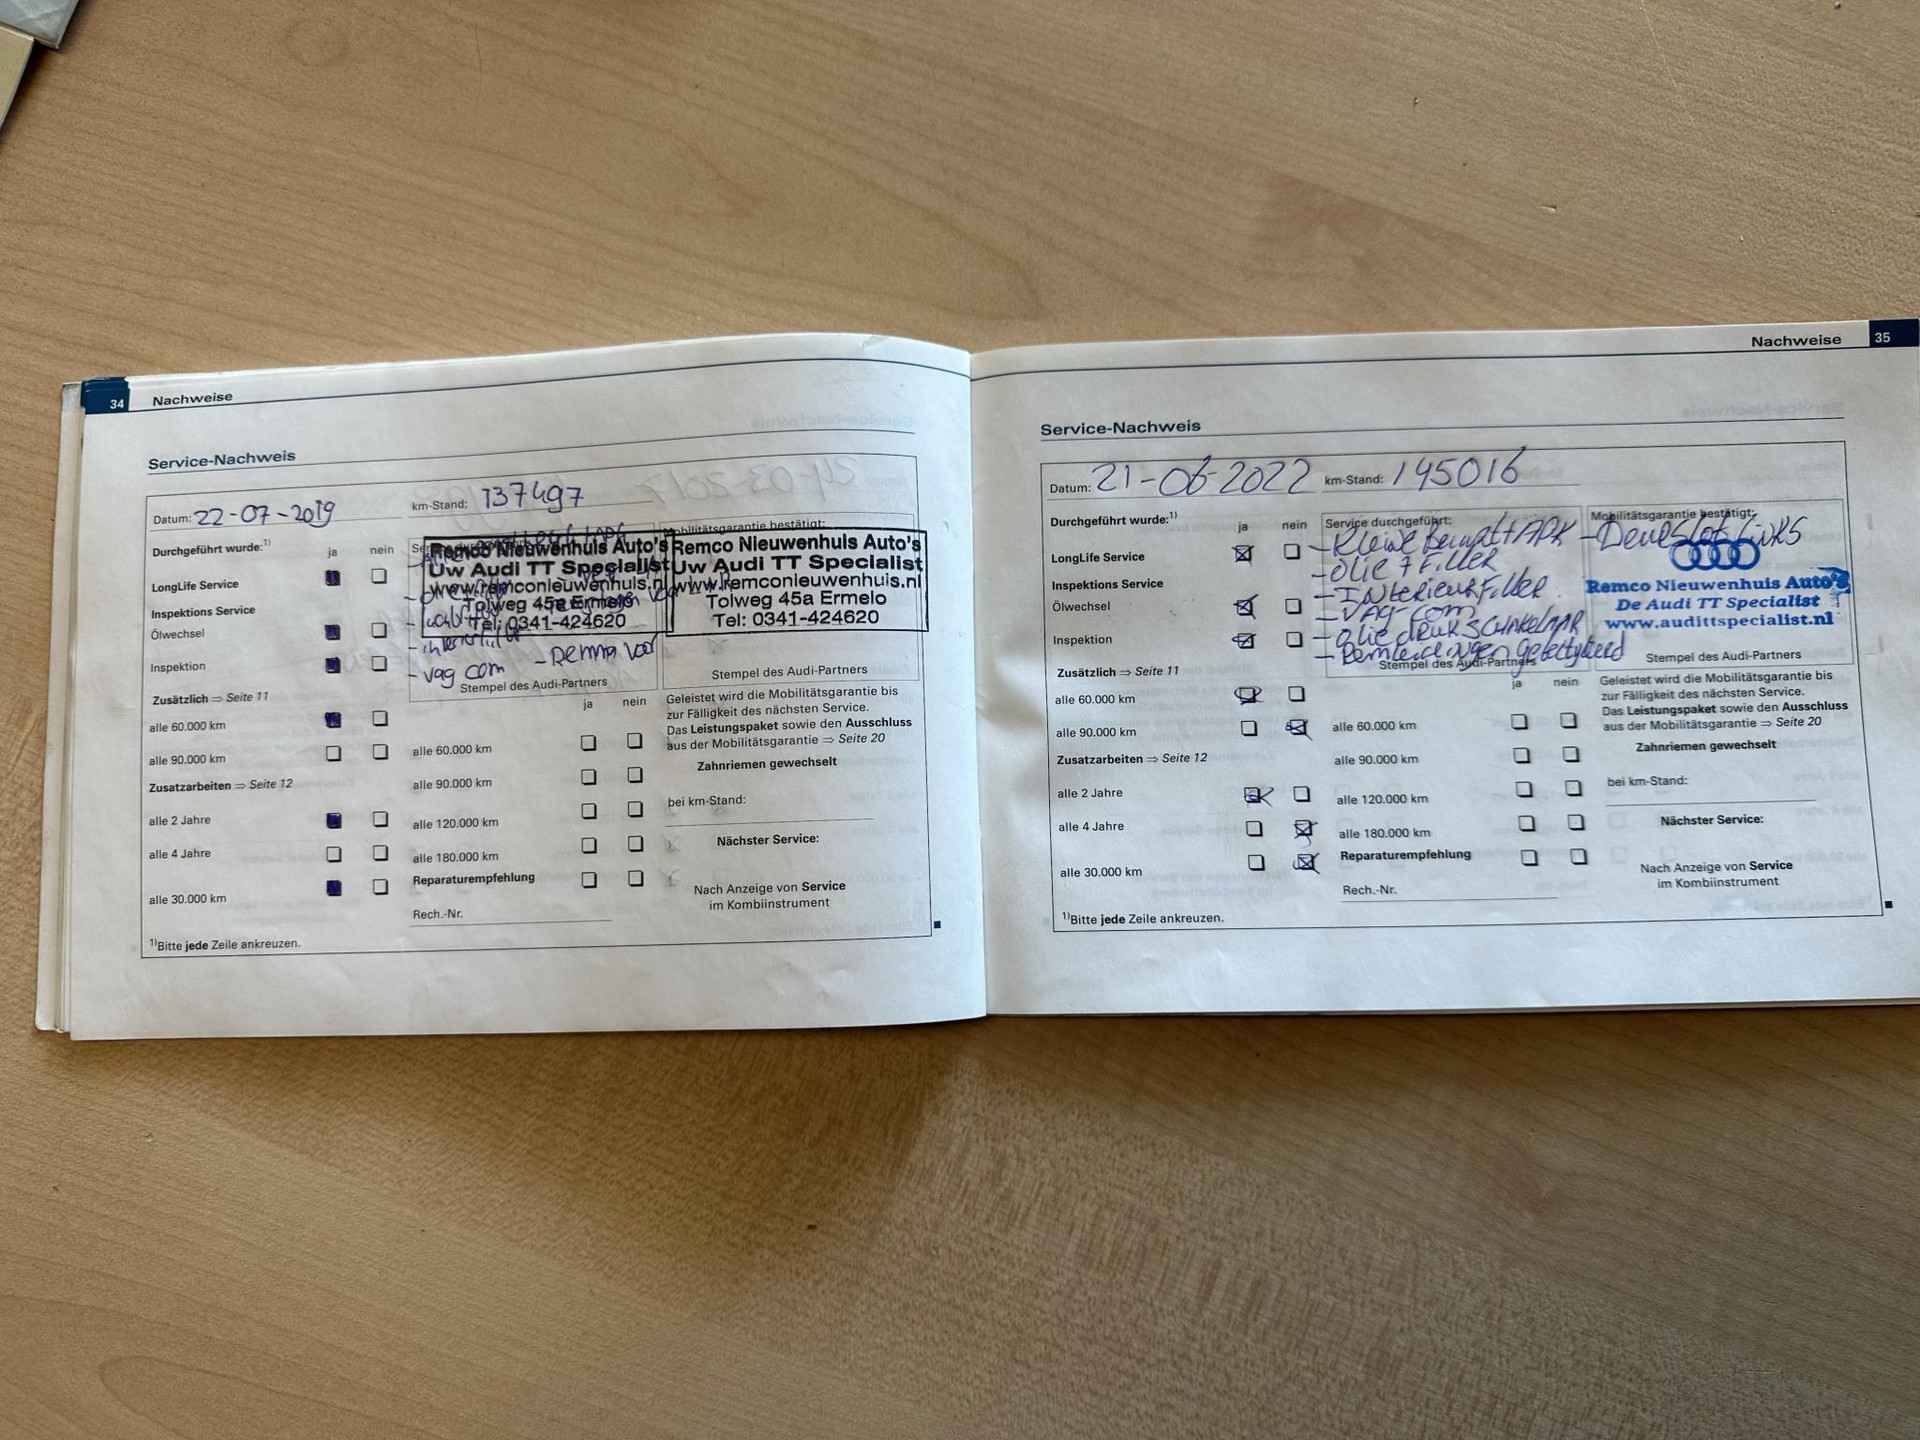 34 Nachweise
Service-Nachweis
Datum: 22-07-2019 km-Stand: 137497
Durchgeführt wurde:1) ja nein
Mobilitätsgarantie bestätigt:
LongLife Service
Inspektions Service
Ölwechsel
Inspektion
Remco Nieuwenhuis Auto's
Uw Audi TT Specialist
www.remconieuwenhuis.nl
Tolweg 45a Ermelo
Tel: 0341-424620
Remco Nieuwenhuis Auto's
Uw Audi TT Specialist
www.remconieuwenhuis.nl
Tolweg 45a Ermelo
Tel: 0341-424620
- vag com - Remma voor
Stempel des Audi-Partners
Stempel des Audi-Partners
Zusätzlich ⇒ Seite 11
alle 60.000 km
alle 90.000 km
Zusatzarbeiten ⇒ Seite 12
alle 2 Jahre
alle 4 Jahre
alle 30.000 km
ja nein
alle 60.000 km
alle 90.000 km
alle 120.000 km
alle 180.000 km
Reparaturempfehlung
Rech.-Nr.
Geleistet wird die Mobilitätsgarantie bis
zur Fälligkeit des nächsten Service.
Das Leistungspaket sowie den Ausschluss
aus der Mobilitätsgarantie ⇒ Seite 20
Zahnriemen gewechselt
bei km-Stand:
Nächster Service:
Nach Anzeige von Service
im Kombiinstrument
1)Bitte jede Zeile ankreuzen.
Nachweise 35
Service-Nachweis
Datum: 21-06-2022 km-Stand: 145016
Durchgeführt wurde:1) ja nein
Service durchgeführt:
- Kleine Beurt + APK
- Olie + Filter
- INterieurfilter
- VAG-com
- Olie druk schakelaar
- Remleidingen
Stempel des Audi-Partners
Mobilitätsgarantie bestätigt:
- Deurslot links
Remco Nieuwenhuis Auto's
De Audi TT Specialist
www.audittspecialist.nl
Stempel des Audi-Partners
LongLife Service
Inspektions Service
Ölwechsel
Inspektion
Zusätzlich ⇒ Seite 11
alle 60.000 km
alle 90.000 km
Zusatzarbeiten ⇒ Seite 12
alle 2 Jahre
alle 4 Jahre
alle 30.000 km
ja nein
alle 60.000 km
alle 90.000 km
alle 120.000 km
alle 180.000 km
Reparaturempfehlung
Rech.-Nr.
Geleistet wird die Mobilitätsgarantie bis
zur Fälligkeit des nächsten Service.
Das Leistungspaket sowie den Ausschluss
aus der Mobilitätsgarantie ⇒ Seite 20
Zahnriemen gewechselt
bei km-Stand:
Nächster Service:
Nach Anzeige von Service
im Kombiinstrument
1)Bitte jede Zeile ankreuzen.